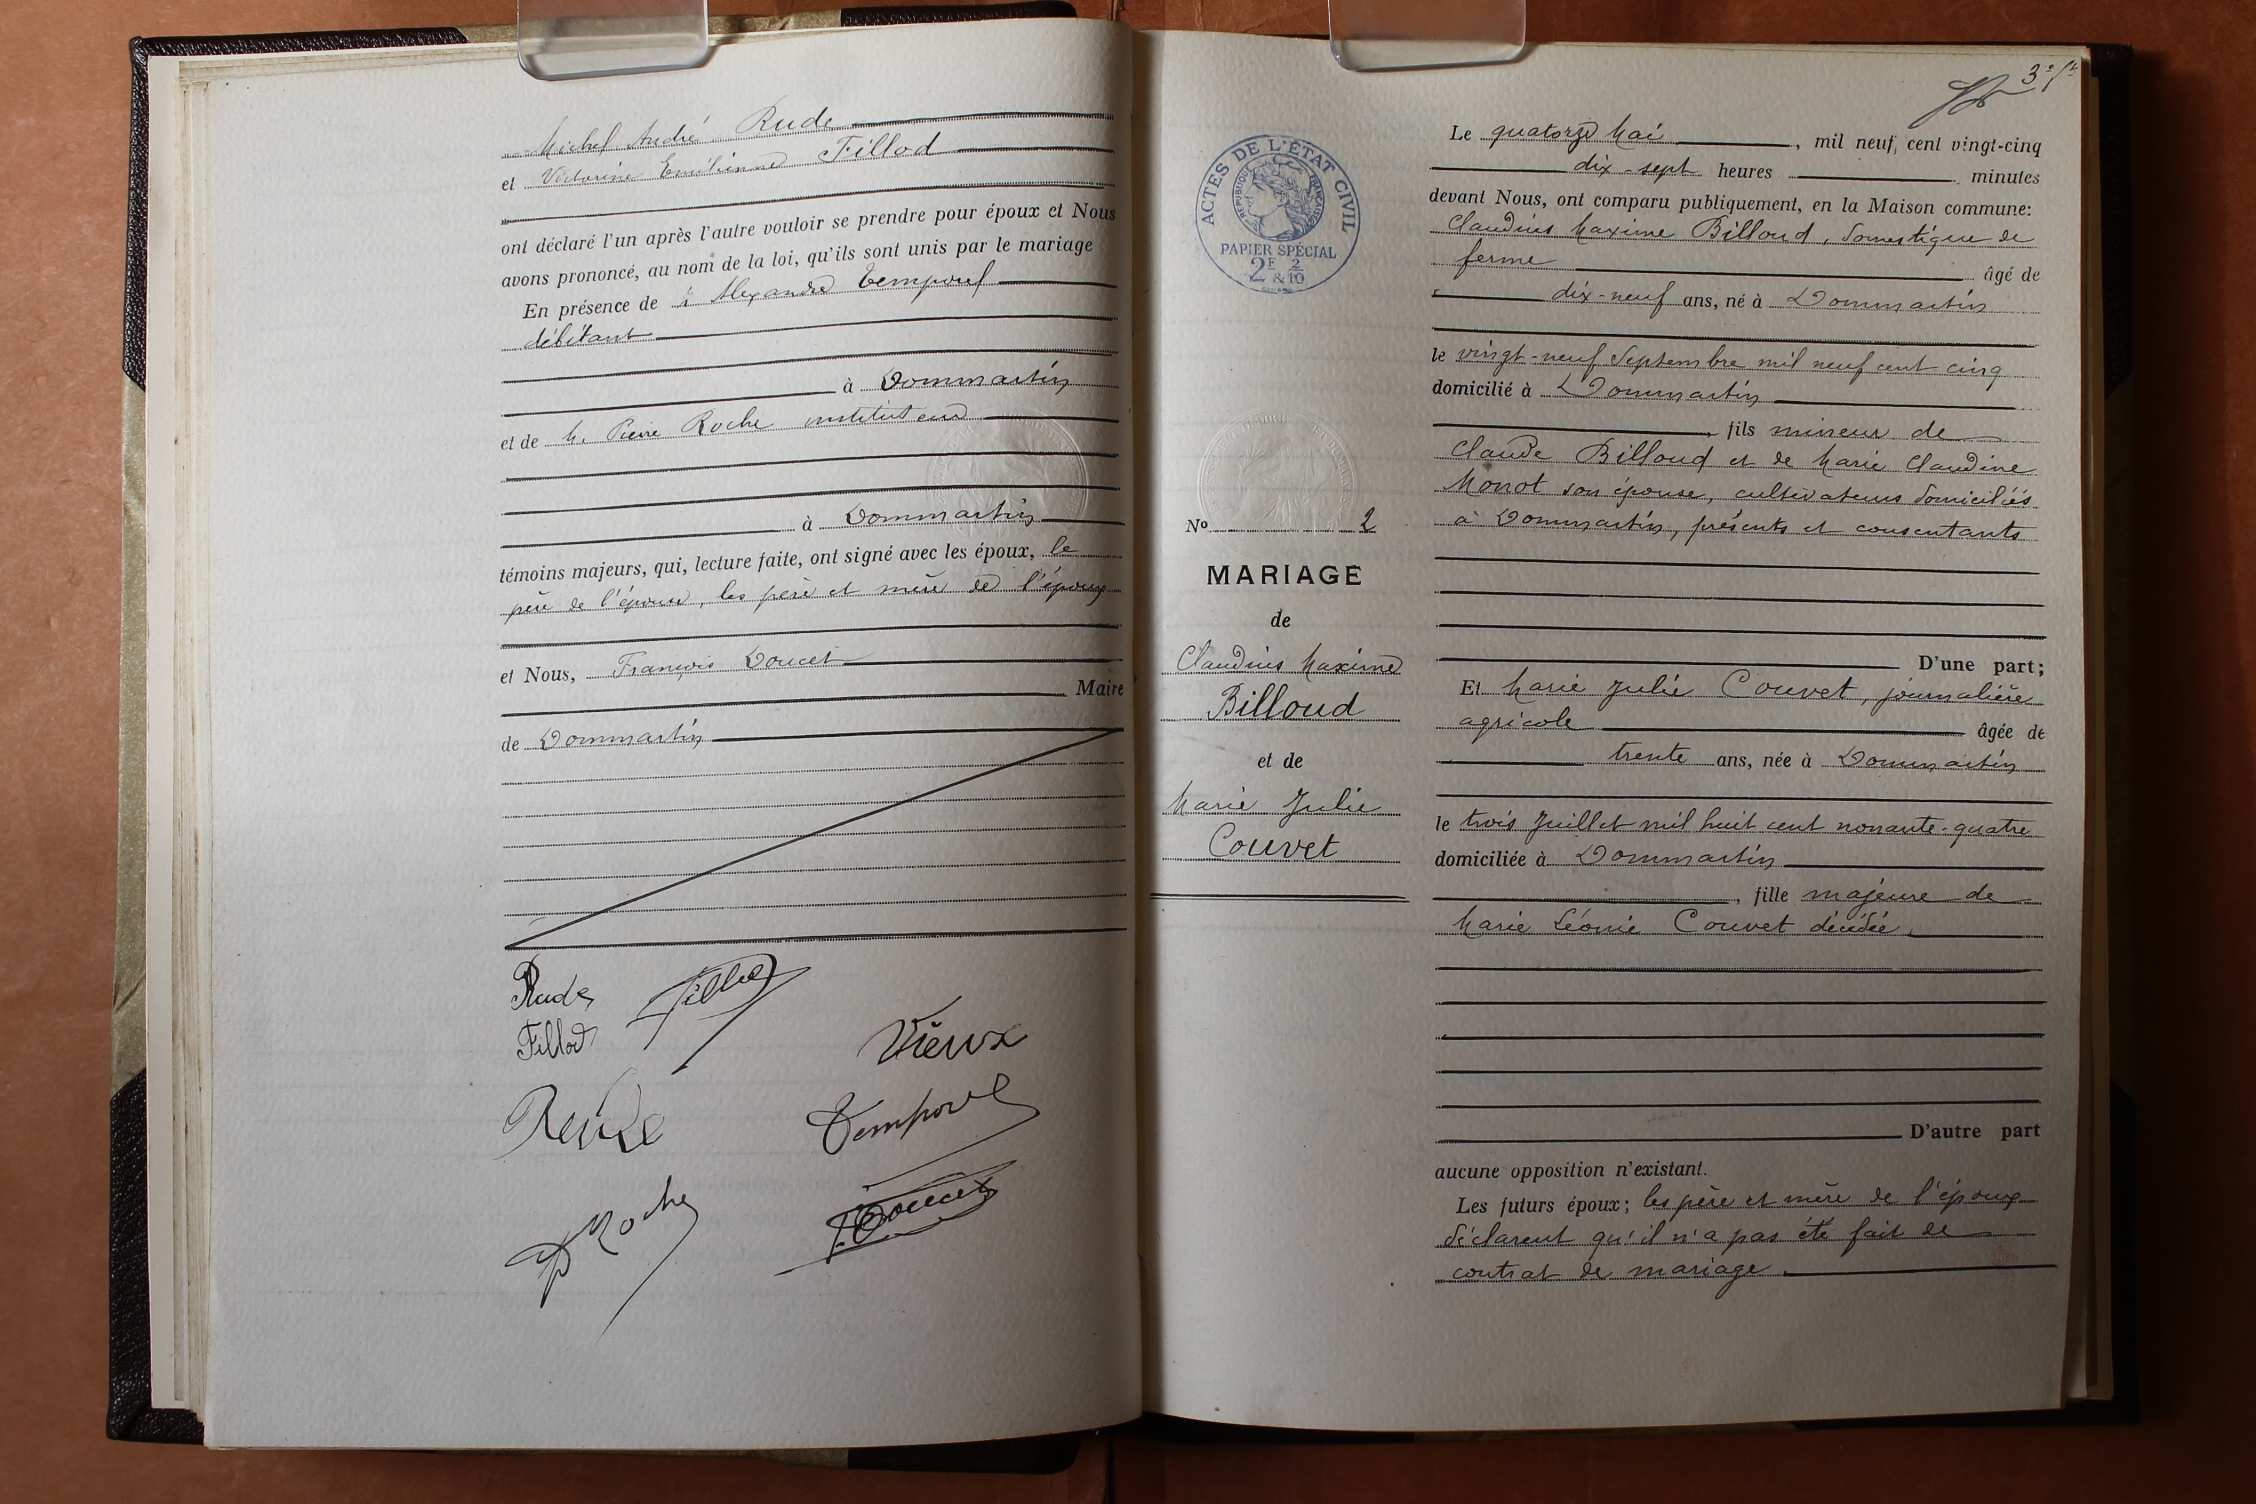 Michel André Rude
et Victorine Emilienne Fillod
ont déclaré l'un après l'autre vouloir se prendre pour époux et Nous
avons prononcé, au nom de la loi, qu'ils sont unis par le mariage
En présence de Alexandre Temporel
débitant
à Dommartin
et de M. Pierre Roche instituteur
à Dommartin
témoins majeurs, qui, lecture faite, ont signé avec les époux, le
père de l'épouse, les père et mère de l'époux
et Nous, François Doucet
Maire
de Dommartin
Rude
Fillod
Fillod
Vieux
Rude
Temporel
Roche
F. Doucet
ACTES DE L'ÉTAT CIVIL
RÉPUBLIQUE FRANÇAISE
PAPIER SPÉCIAL
2F & 2/10
No 2
MARIAGE
de
Claudius Maxime
Billoud
et de
Marie Julie
Couvet
Le quatorze Mai, mil neuf cent vingt-cinq
dix-sept heures minutes
devant Nous, ont comparu publiquement, en la Maison commune:
Claudius Maxime Billoud, domestique de
ferme âgé de
dix-neuf ans, né à Dommartin
le vingt-neuf Septembre mil neuf cent cinq
domicilié à Dommartin
, fils mineur de
Claude Billoud et de Marie Claudine
Monot son épouse, cultivateurs domiciliés
à Dommartin, présents et consentants
D'une part;
Et Marie Julie Couvet, journalière
agricole âgée de
trente ans, née à Dommartin
le trois Juillet mil huit cent nonante-quatre
domiciliée à Dommartin
, fille majeure de
Marie Léonie Couvet décédée.
D'autre part
aucune opposition n'existant.
Les futurs époux; les père et mère de l'époux
déclarent qu'il n'a pas été fait de
contrat de mariage.